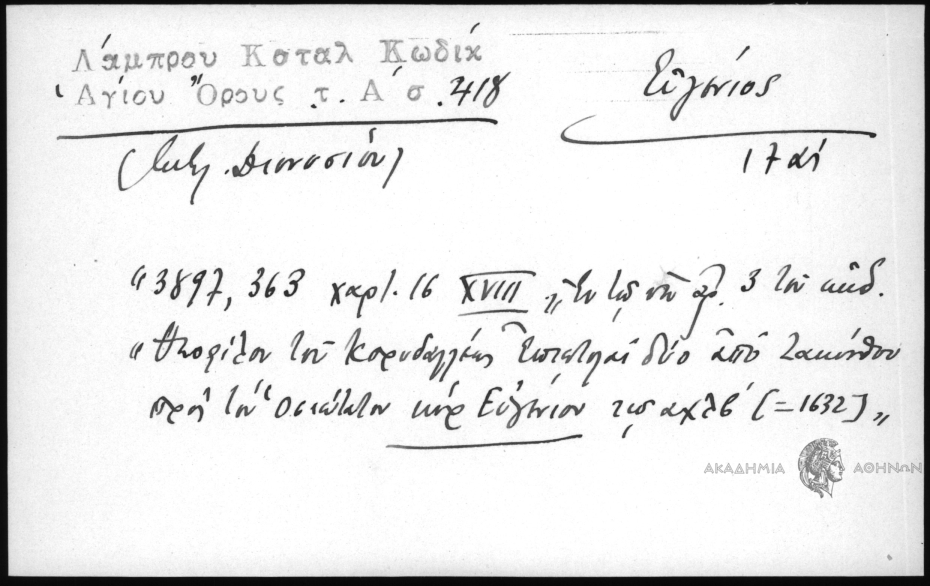 Λάμπρου Καταλ Κωδίκ
Ἁγίου Ὄρους τ. Α σ. 418
Εὐγένιος
(Διονυσίου)
17 αἰ
"3897, 363 χαρτ. 16 XVIII „Ἐν τῷ ὑπ ἀρ. 3 τοῦ κώδ.
"Θεοφίλου τοῦ Κορυδαλλέως Ἐπιστολαὶ δύο ἀπὸ Ζακύνθου
πρὸς τὸν ὁσιώτατον κὺρ Εὐγένιον τῷ αχλβ (=1632)„
ΑΚΑΔΗΜΙΑ ΑΘΗΝΩΝ